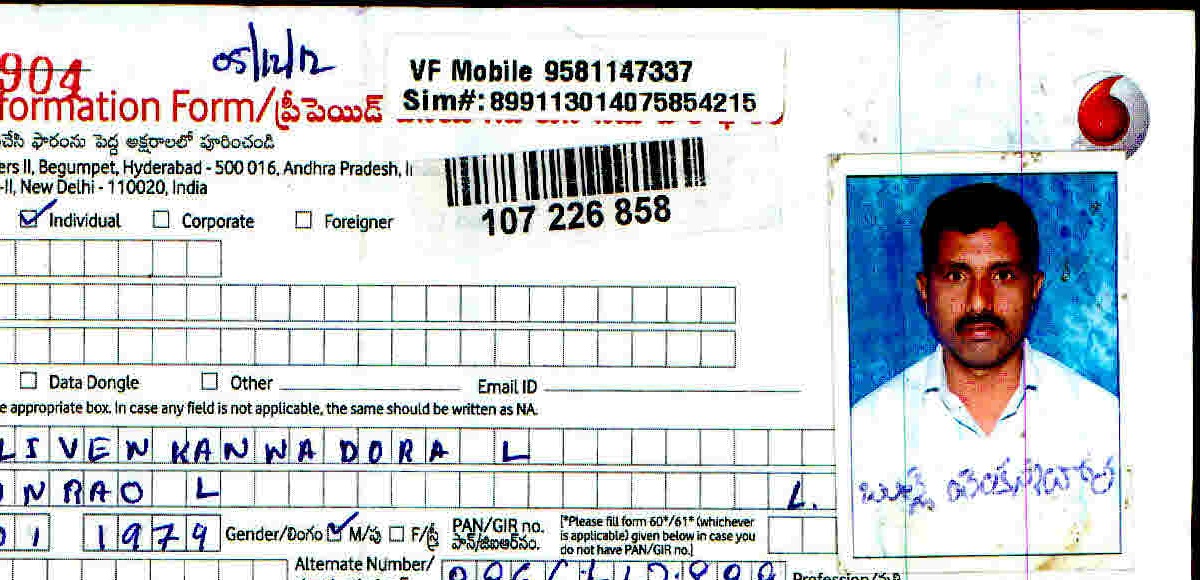 904
05/12/12
VF Mobile 9581147337
Sim#: 899113014075854215
formation Form/ప్రీపెయిడ్
చేసి ఫారంను పెద్ద అక్షరాలలో పూరించండి
ers II, Begumpet, Hyderabad - 500 016, Andhra Pradesh, I
-II, New Delhi - 110020, India
107 226 858
Individual Corporate Foreigner
Data Dongle Other Email ID
e appropriate box. In case any field is not applicable, the same should be written as NA.
LIVENKANWADORA L
NRAO L L.
01 1979 Gender/లింగం M/పు F/స్త్రీ PAN/GIR no.
పాన్/జిఐఆర్ నం.
[*Please fill form 60*/61* (whichever
is applicable) given below in case you
do not have PAN/GIR no.]
Alternate Number/